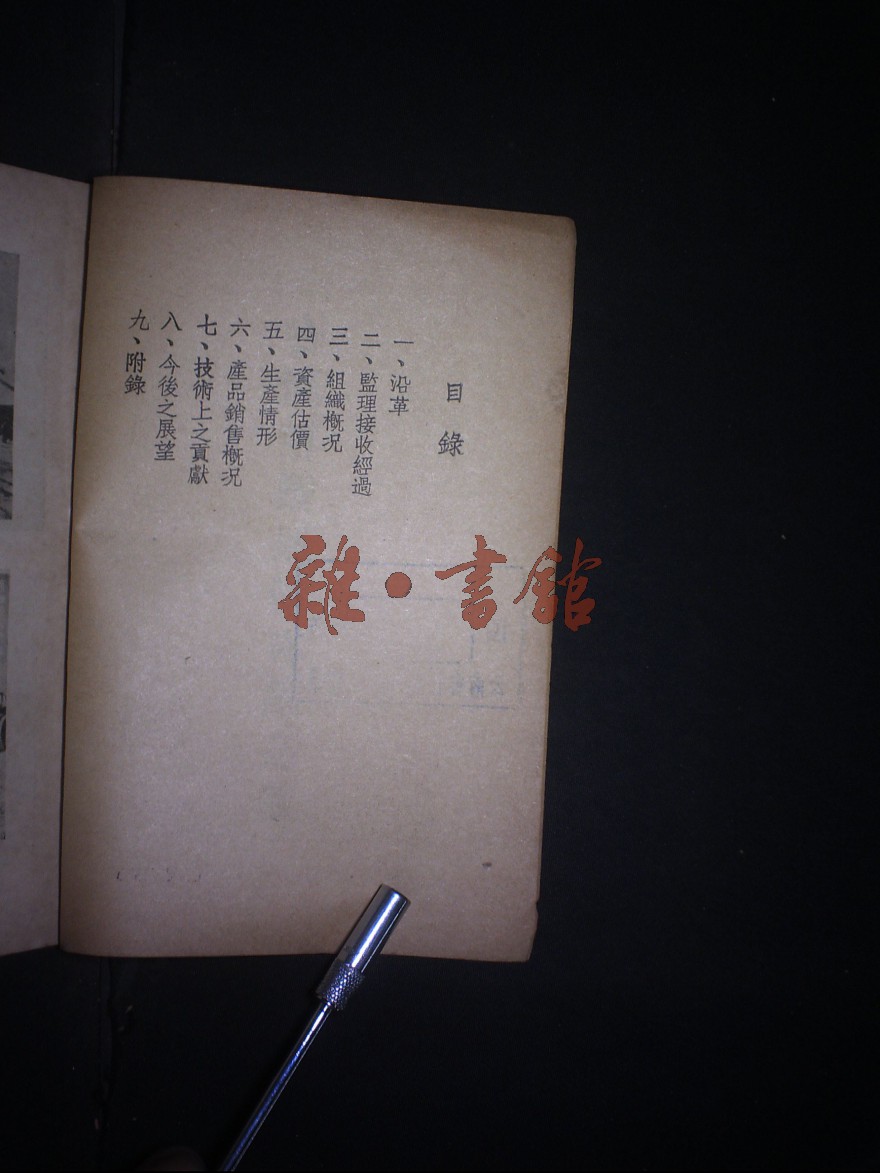 目錄
一、沿革
二、監理接收經過
三、組織概况
四、資產估價
五、生產情形
六、產品銷售概况
七、技術上之貢獻
八、今後之展望
九、附錄
雜·書館